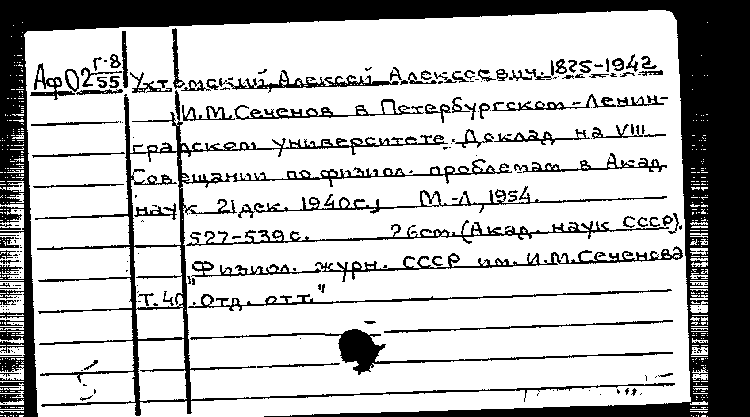 Аф02 г-8/55 Ухтомский, Алексей Алексеевич. 1825-1942
И.М.Сеченов в Петербургском-Ленин-
градском университете. Доклад на VIII
Совещании по физиол. проблемам в Акад
наук 21 дек. 1940г.] М.-Л., 1954.
527-539 с. 26см. (Акад. наук СССР).
"Физиол. журн. СССР им. И.М.Сеченова
Т.40. Отд. отт."
5